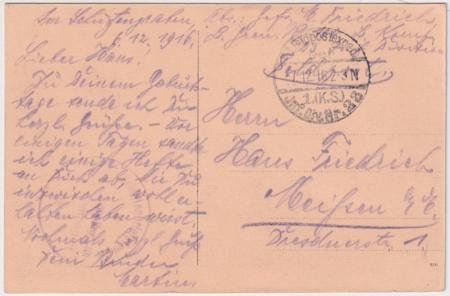 Im Schützengraben,
6.12.1916.
Lieber Hans!
Zu Deinem Geburts-
tage sende ich Dir
herzl. Grüße. Vor
einigen Tagen sandte
ich einige Hefte
an Dich ab, die Du
inzwischen voll er-
halten haben wirst.
Nochmals herzl. Grüße
Dein Bruder
Friedrich
Feldpostexped.
1.(K.S.)
Inf.Div.Nr.23
Herrn
Hans Friedrich
Meißen
Dresdnerstr. 1